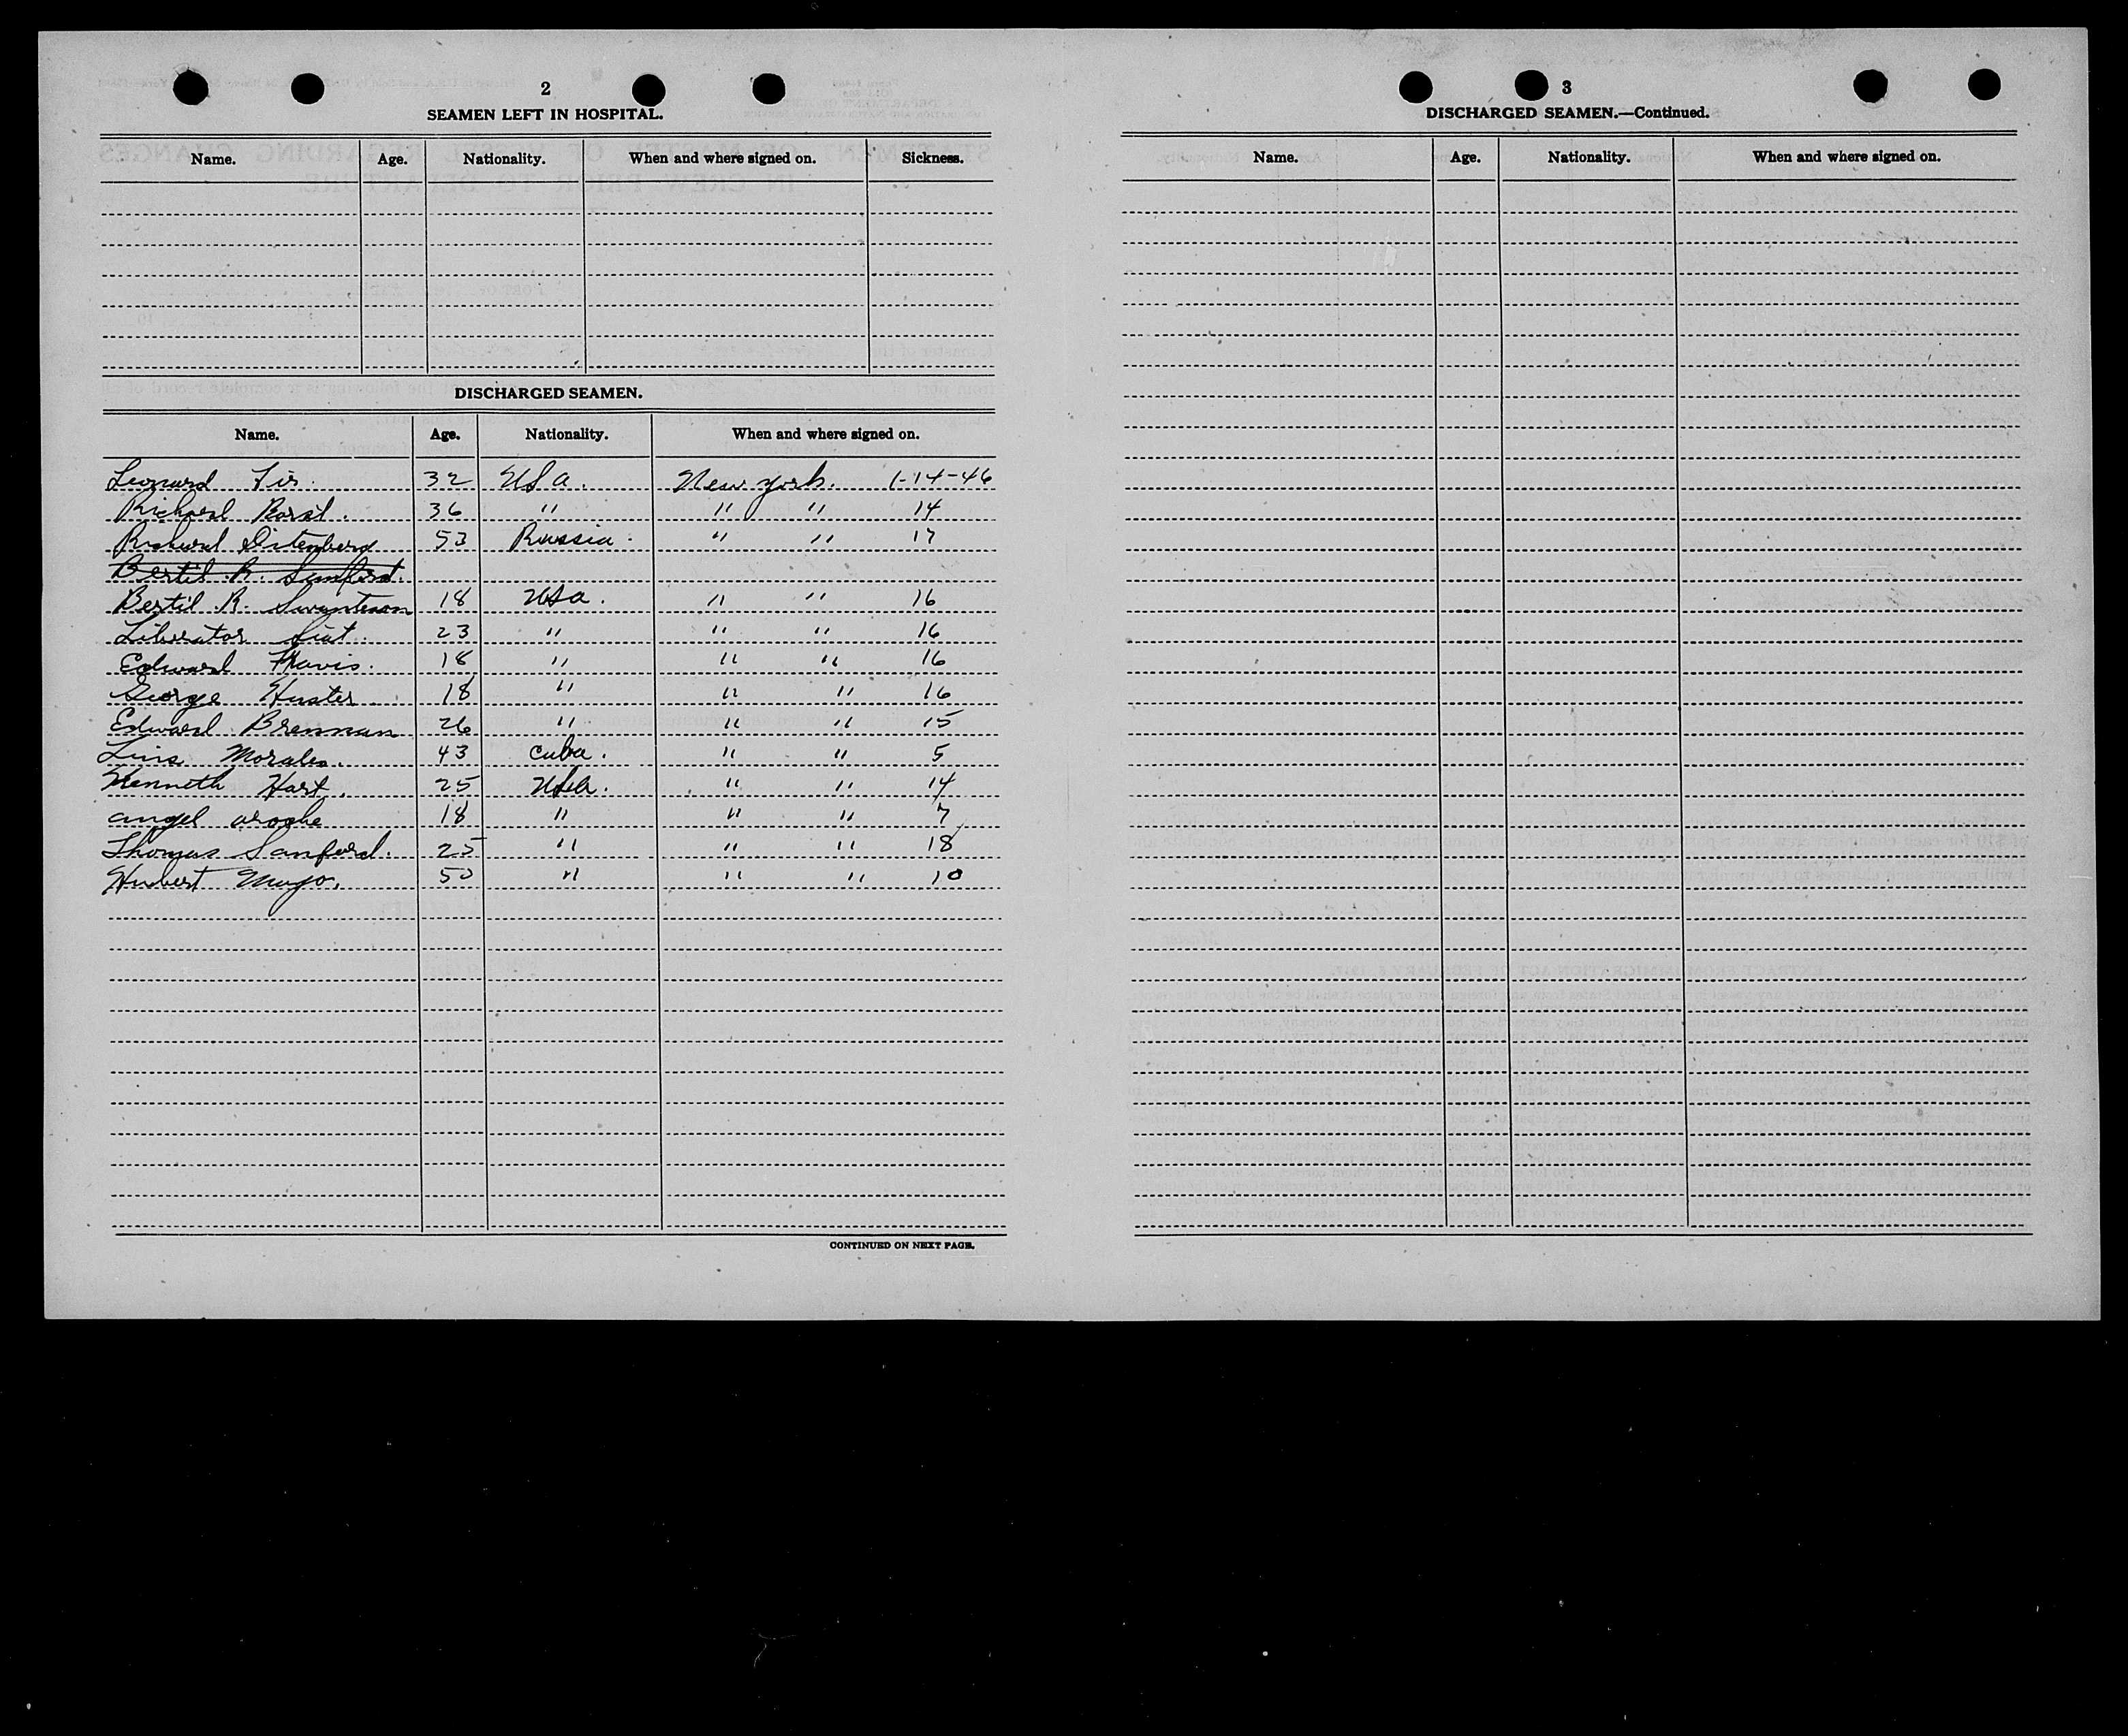 2
SEAMEN LEFT IN HOSPITAL.
Name. Age. Nationality. When and where signed on. Sickness.
DISCHARGED SEAMEN.
Name. Age. Nationality. When and where signed on.
Leonard 32 USA. New York. 1-14-46
Richard 36 " " " 14
Richard 53 Russia. " " 17
Bertil R. Sanford.
Bertil R. Swanteson 18 USA. " " 16
Liberator 23 " " " 16
Edward Travis. 18 " " " 16
George Huster 18 " " " 16
Edward Brennan 26 " " " 15
Luis Morales. 43 Cuba. " " 5
Kenneth Hart. 25 USA. " " 14
angel aroche 18 " " " 7
Thomas Sanford. 25 " " " 18
Hubert Mayo. " " " 10
CONTINUED ON NEXT PAGE.
3
DISCHARGED SEAMEN.—Continued.
Name. Age. Nationality. When and where signed on.